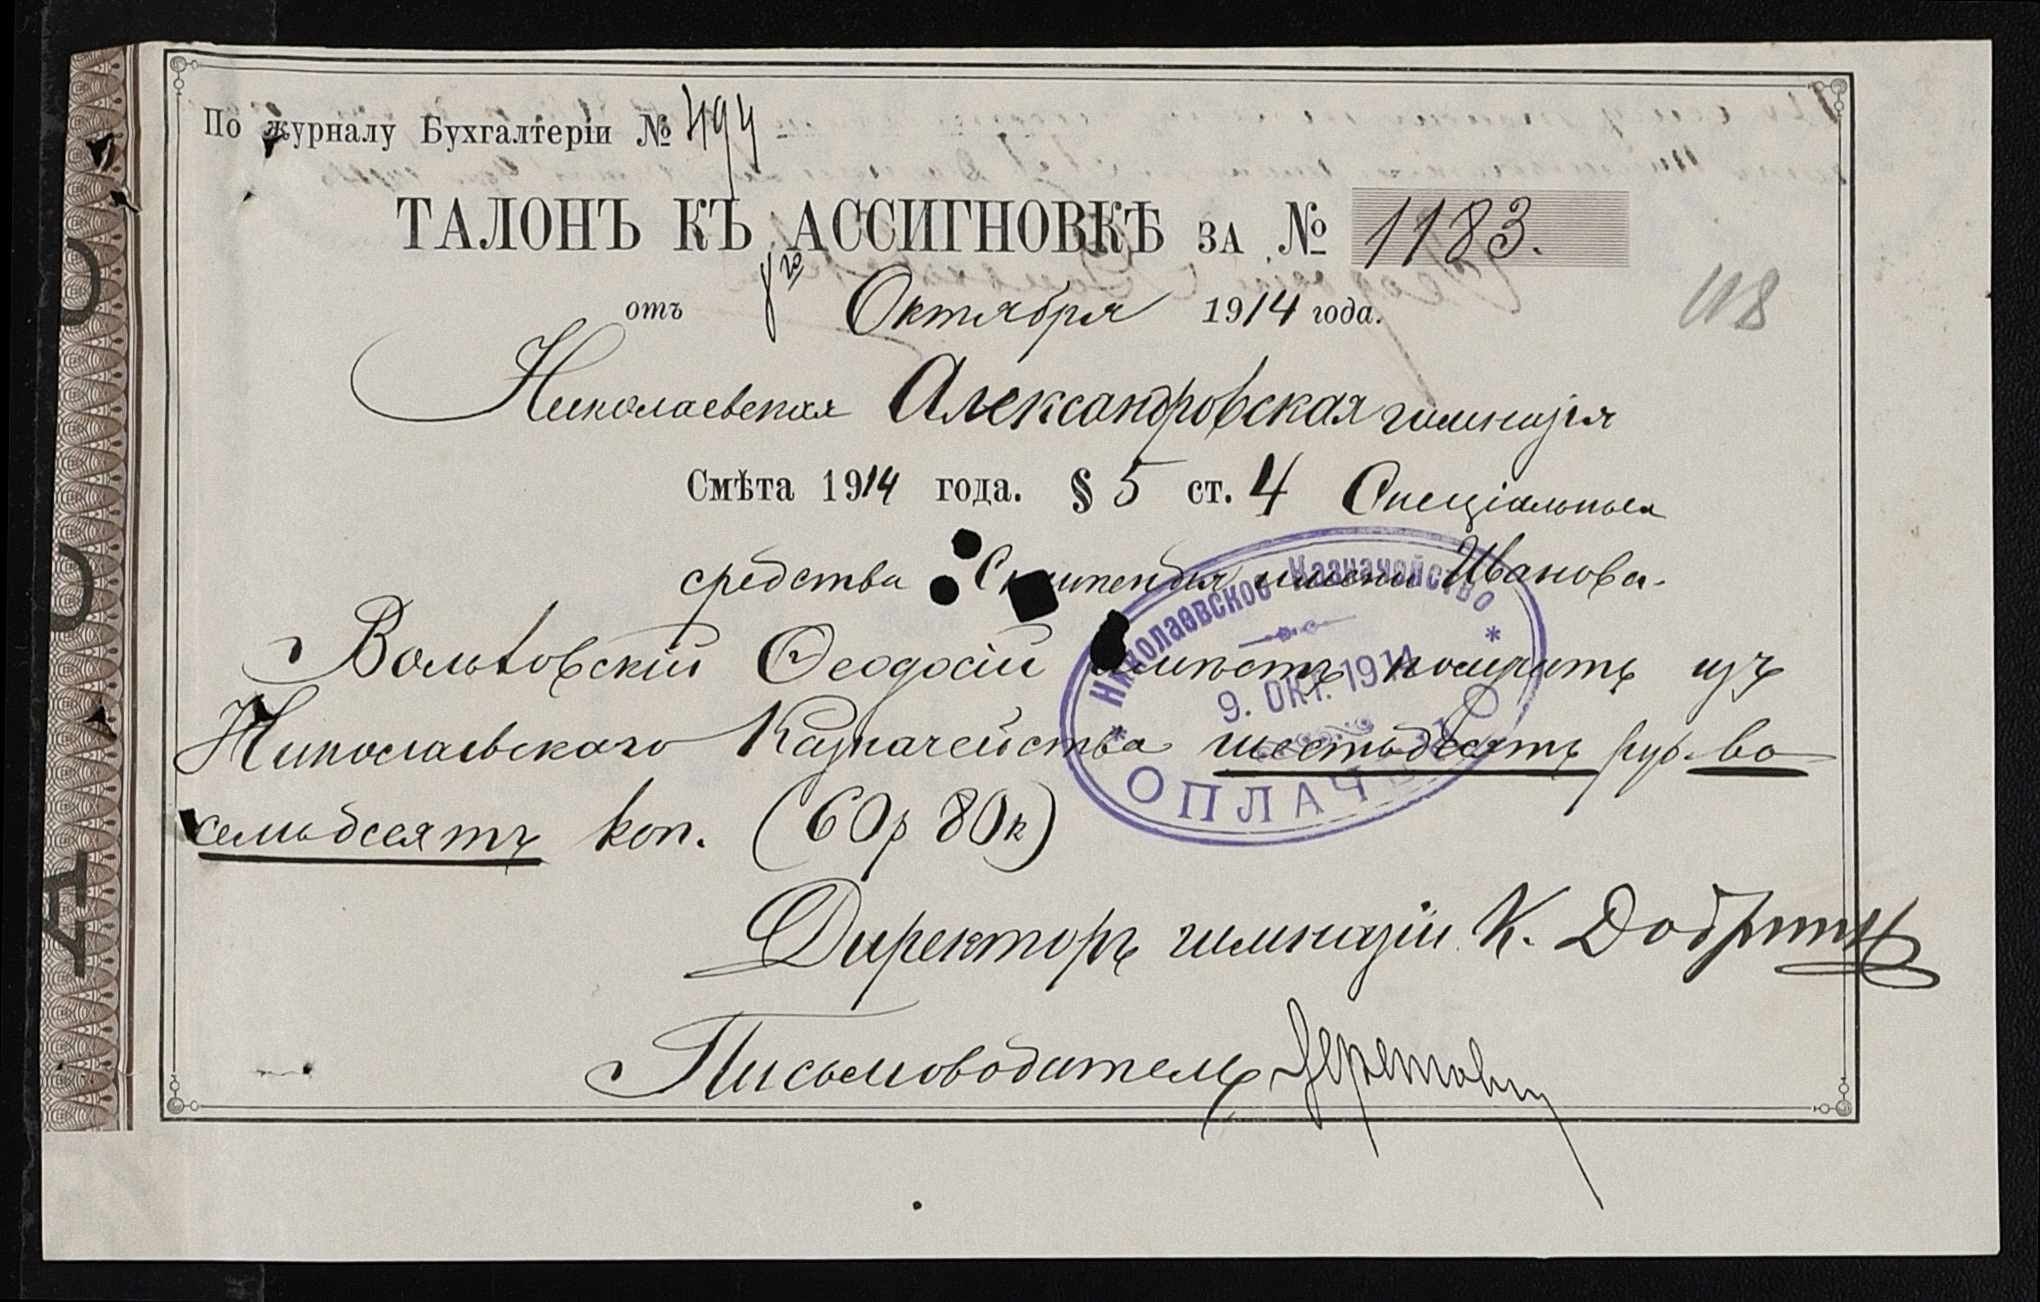 По журналу Бухгалтеріи № 494
ТАЛОНЪ КЪ АССИГНОВКѢ ЗА № 1183.
отъ 8го Октября 1914 года.
118
Николаевская Александровская гимназія
Смѣта 1914 года. § 5 ст. 4 Спеціальныя
средства Стипендія имени Иванова.
Вольховскій Ѳеодосій имѣетъ получить изъ
Николаевскаго Казначейства шестьдесятъ руб. во
семьдесятъ коп. (60р 80к)
Николаевское Казначейство
9. ОКТ. 1914
ОПЛАЧЕНО
Директоръ гимназіи К. Добр
Письмоводитель